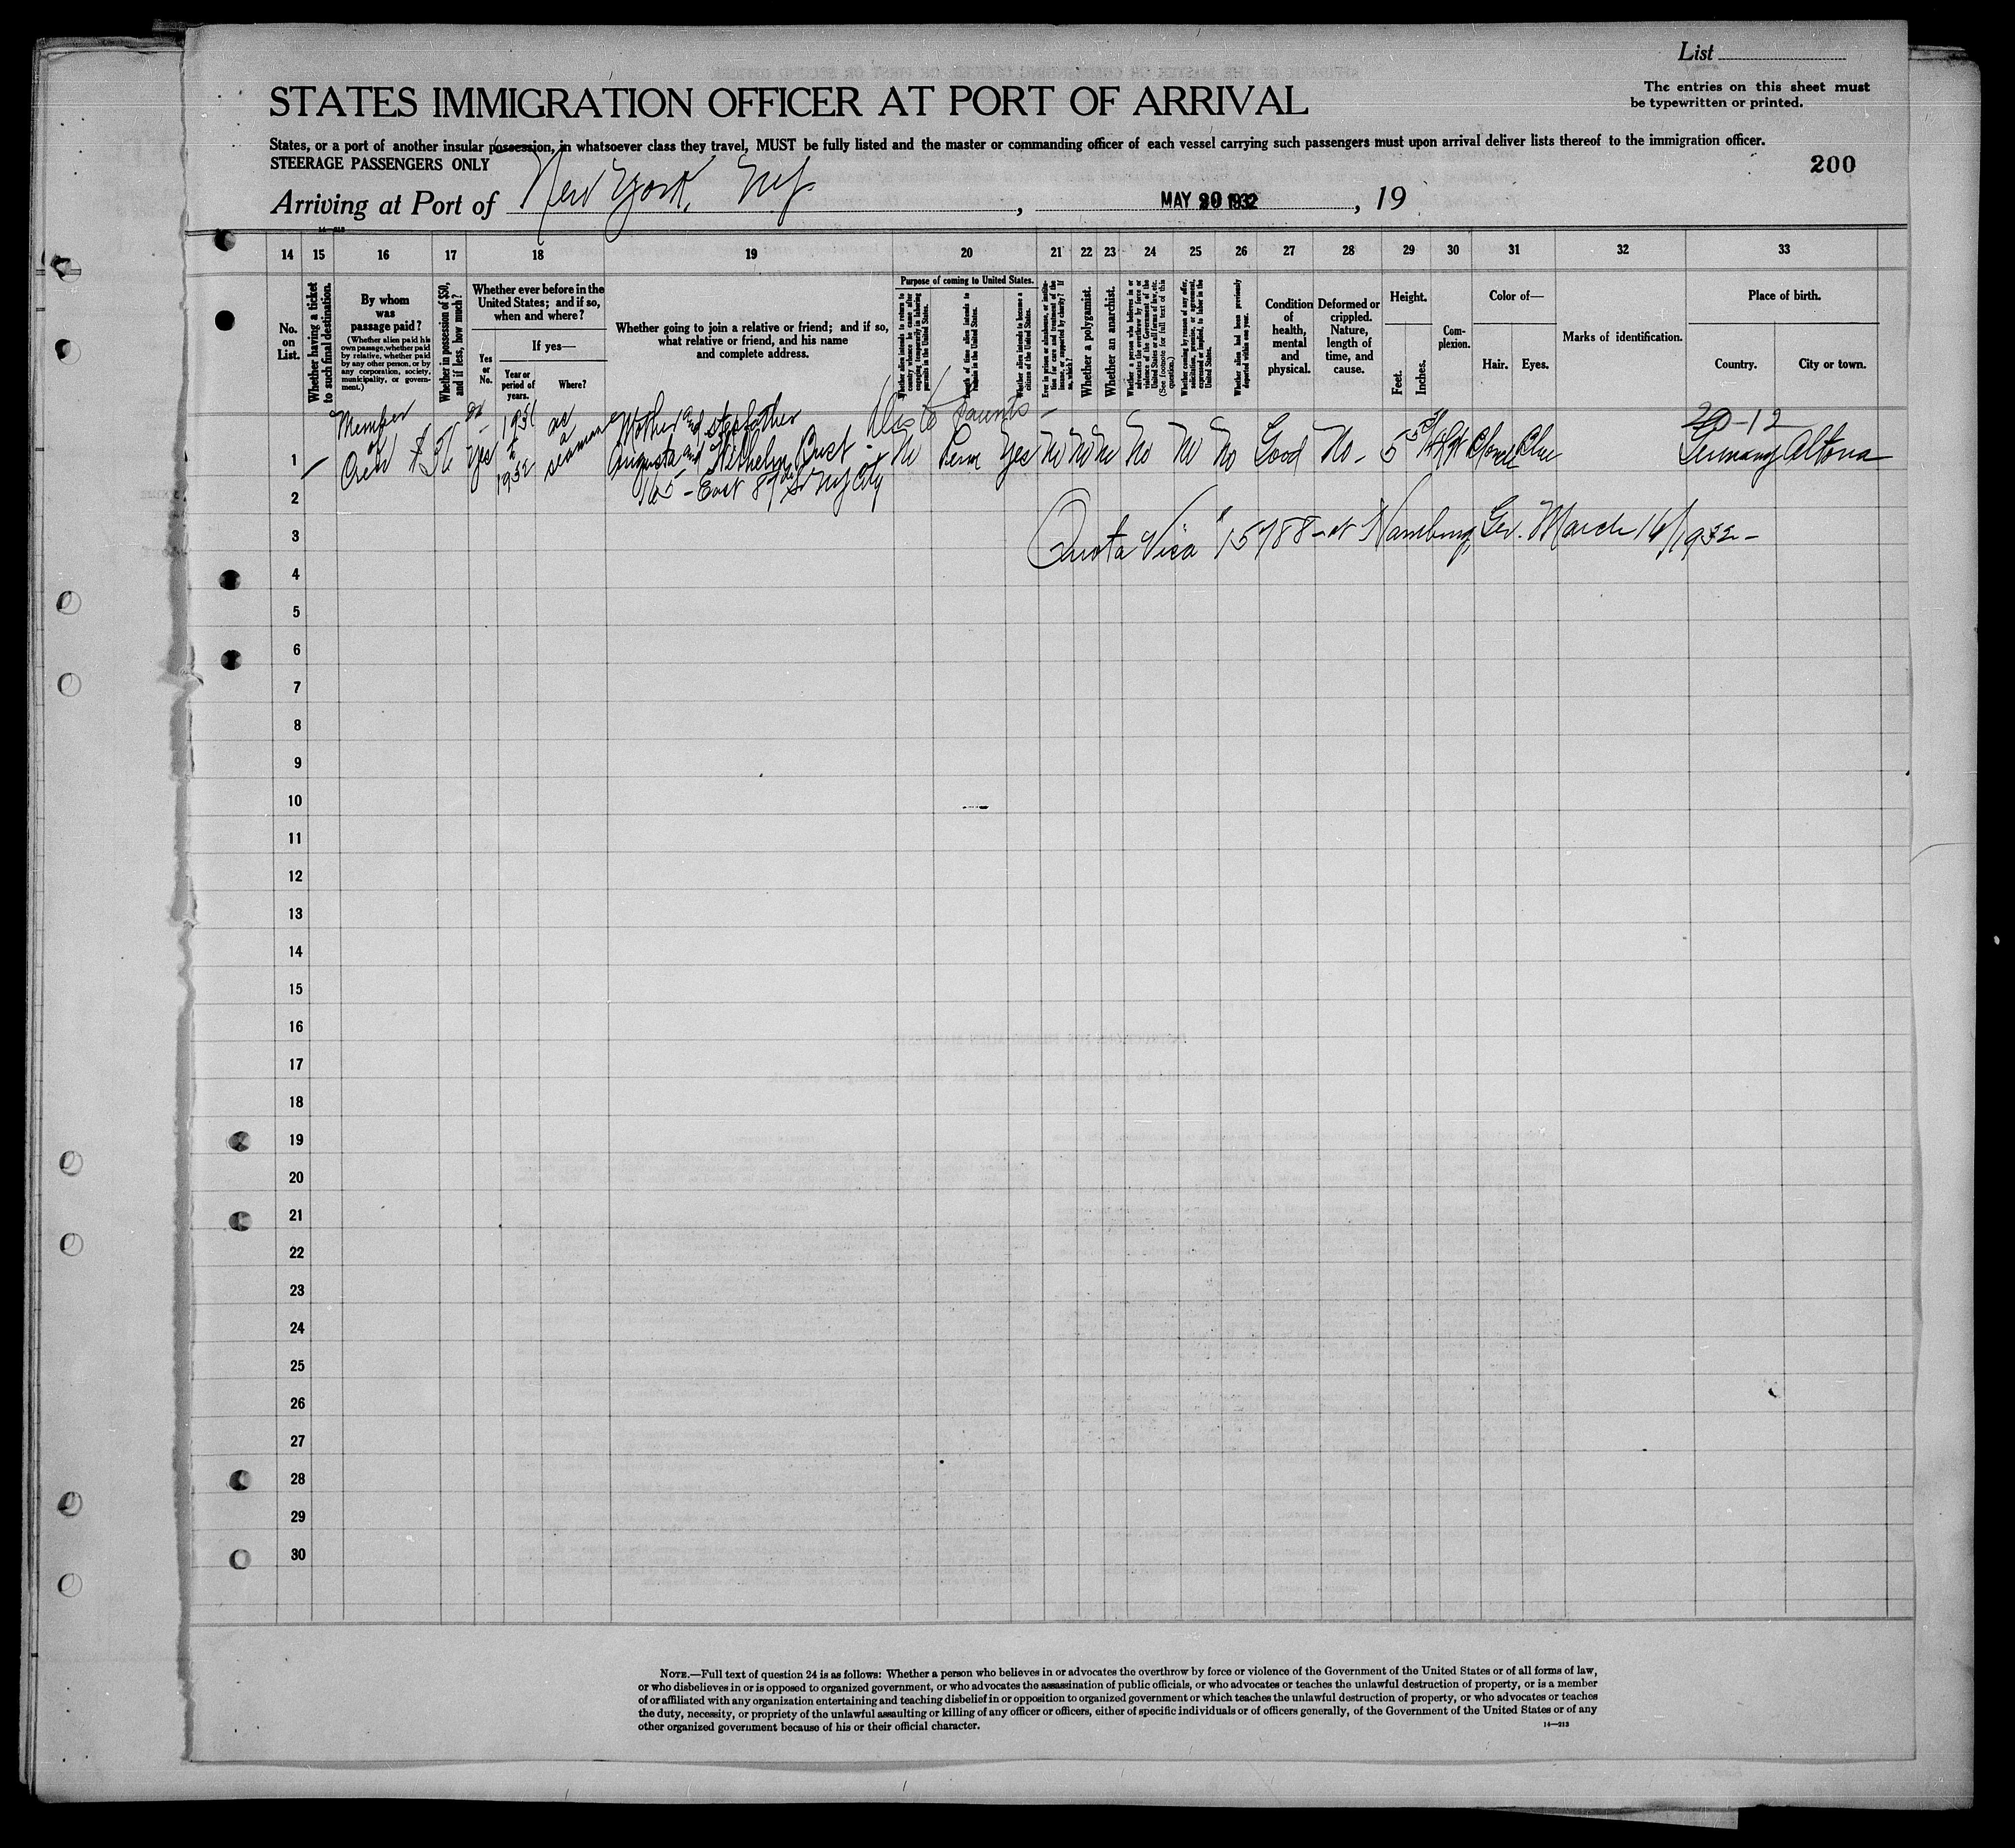 List
The entries on this sheet must
be typewritten or printed.
STATES IMMIGRATION OFFICER AT PORT OF ARRIVAL
States, or a port of another insular possession, in whatsoever class they travel, MUST be fully listed and the master or commanding officer of each vessel carrying such passengers must upon arrival deliver lists thereof to the immigration officer.
STEERAGE PASSENGERS ONLY
200
Arriving at Port of New York, NY , MAY 1932 , 19
14—213
14 15 16 17 18 19 20 21 22 23 24 25 26 27 28 29 30 31 32 33
No. on List.
Whether having a ticket to such final destination.
By whom was passage paid?
(Whether alien paid his own passage, whether paid by relative, whether paid by any other person, or by any corporation, society, municipality, or government.)
Whether in possession of $50, and if less, how much?
Whether ever before in the United States; and if so, when and where?
Yes or No.
If yes—
Year or period of years.
Where?
Whether going to join a relative or friend; and if so, what relative or friend, and his name and complete address.
Purpose of coming to United States.
Whether alien intends to return to country whence he came after engaging temporarily in laboring pursuits in the United States.
Length of time alien intends to remain in the United States.
Whether alien intends to become a citizen of the United States.
Ever in prison or almshouse, or institution for care and treatment of the insane, or supported by charity? If so, which?
Whether a polygamist.
Whether an anarchist.
Whether a person who believes in or advocates the overthrow by force or violence of the Government of the United States or all forms of law, etc. (See footnote for full text of this question.)
Whether coming by reason of any offer, solicitation, promise, or agreement, expressed or implied, to labor in the United States.
Whether alien had been previously deported within one year.
Condition of health, mental and physical.
Deformed or crippled. Nature, length of time, and cause.
Height.
Feet.
Inches.
Complexion.
Color of—
Hair.
Eyes.
Marks of identification.
Place of birth.
Country.
City or town.
Member 1931 as Mother and stepfather
1 of Crew yes to 1932 a seaman Augusta and Wilhelm - No Perm Yes No No No No No No Good No - 5 Blonde Blue Germany Altona
165 - East 87 St NY City
-12
2
3 Quota Visa 15788 - at Hamburg, Ger. March 16/1932 -
4
5
6
7
8
9
10
11
12
13
14
15
16
17
18
19
20
21
22
23
24
25
26
27
28
29
30
NOTE.—Full text of question 24 is as follows: Whether a person who believes in or advocates the overthrow by force or violence of the Government of the United States or of all forms of law,
or who disbelieves in or is opposed to organized government, or who advocates the assassination of public officials, or who advocates or teaches the unlawful destruction of property, or is a member
of or affiliated with any organization entertaining and teaching disbelief in or opposition to organized government or which teaches the unlawful destruction of property, or who advocates or teaches
the duty, necessity, or propriety of the unlawful assaulting or killing of any officer or officers, either of specific individuals or of officers generally, of the Government of the United States or of any
other organized government because of his or their official character.
14—213